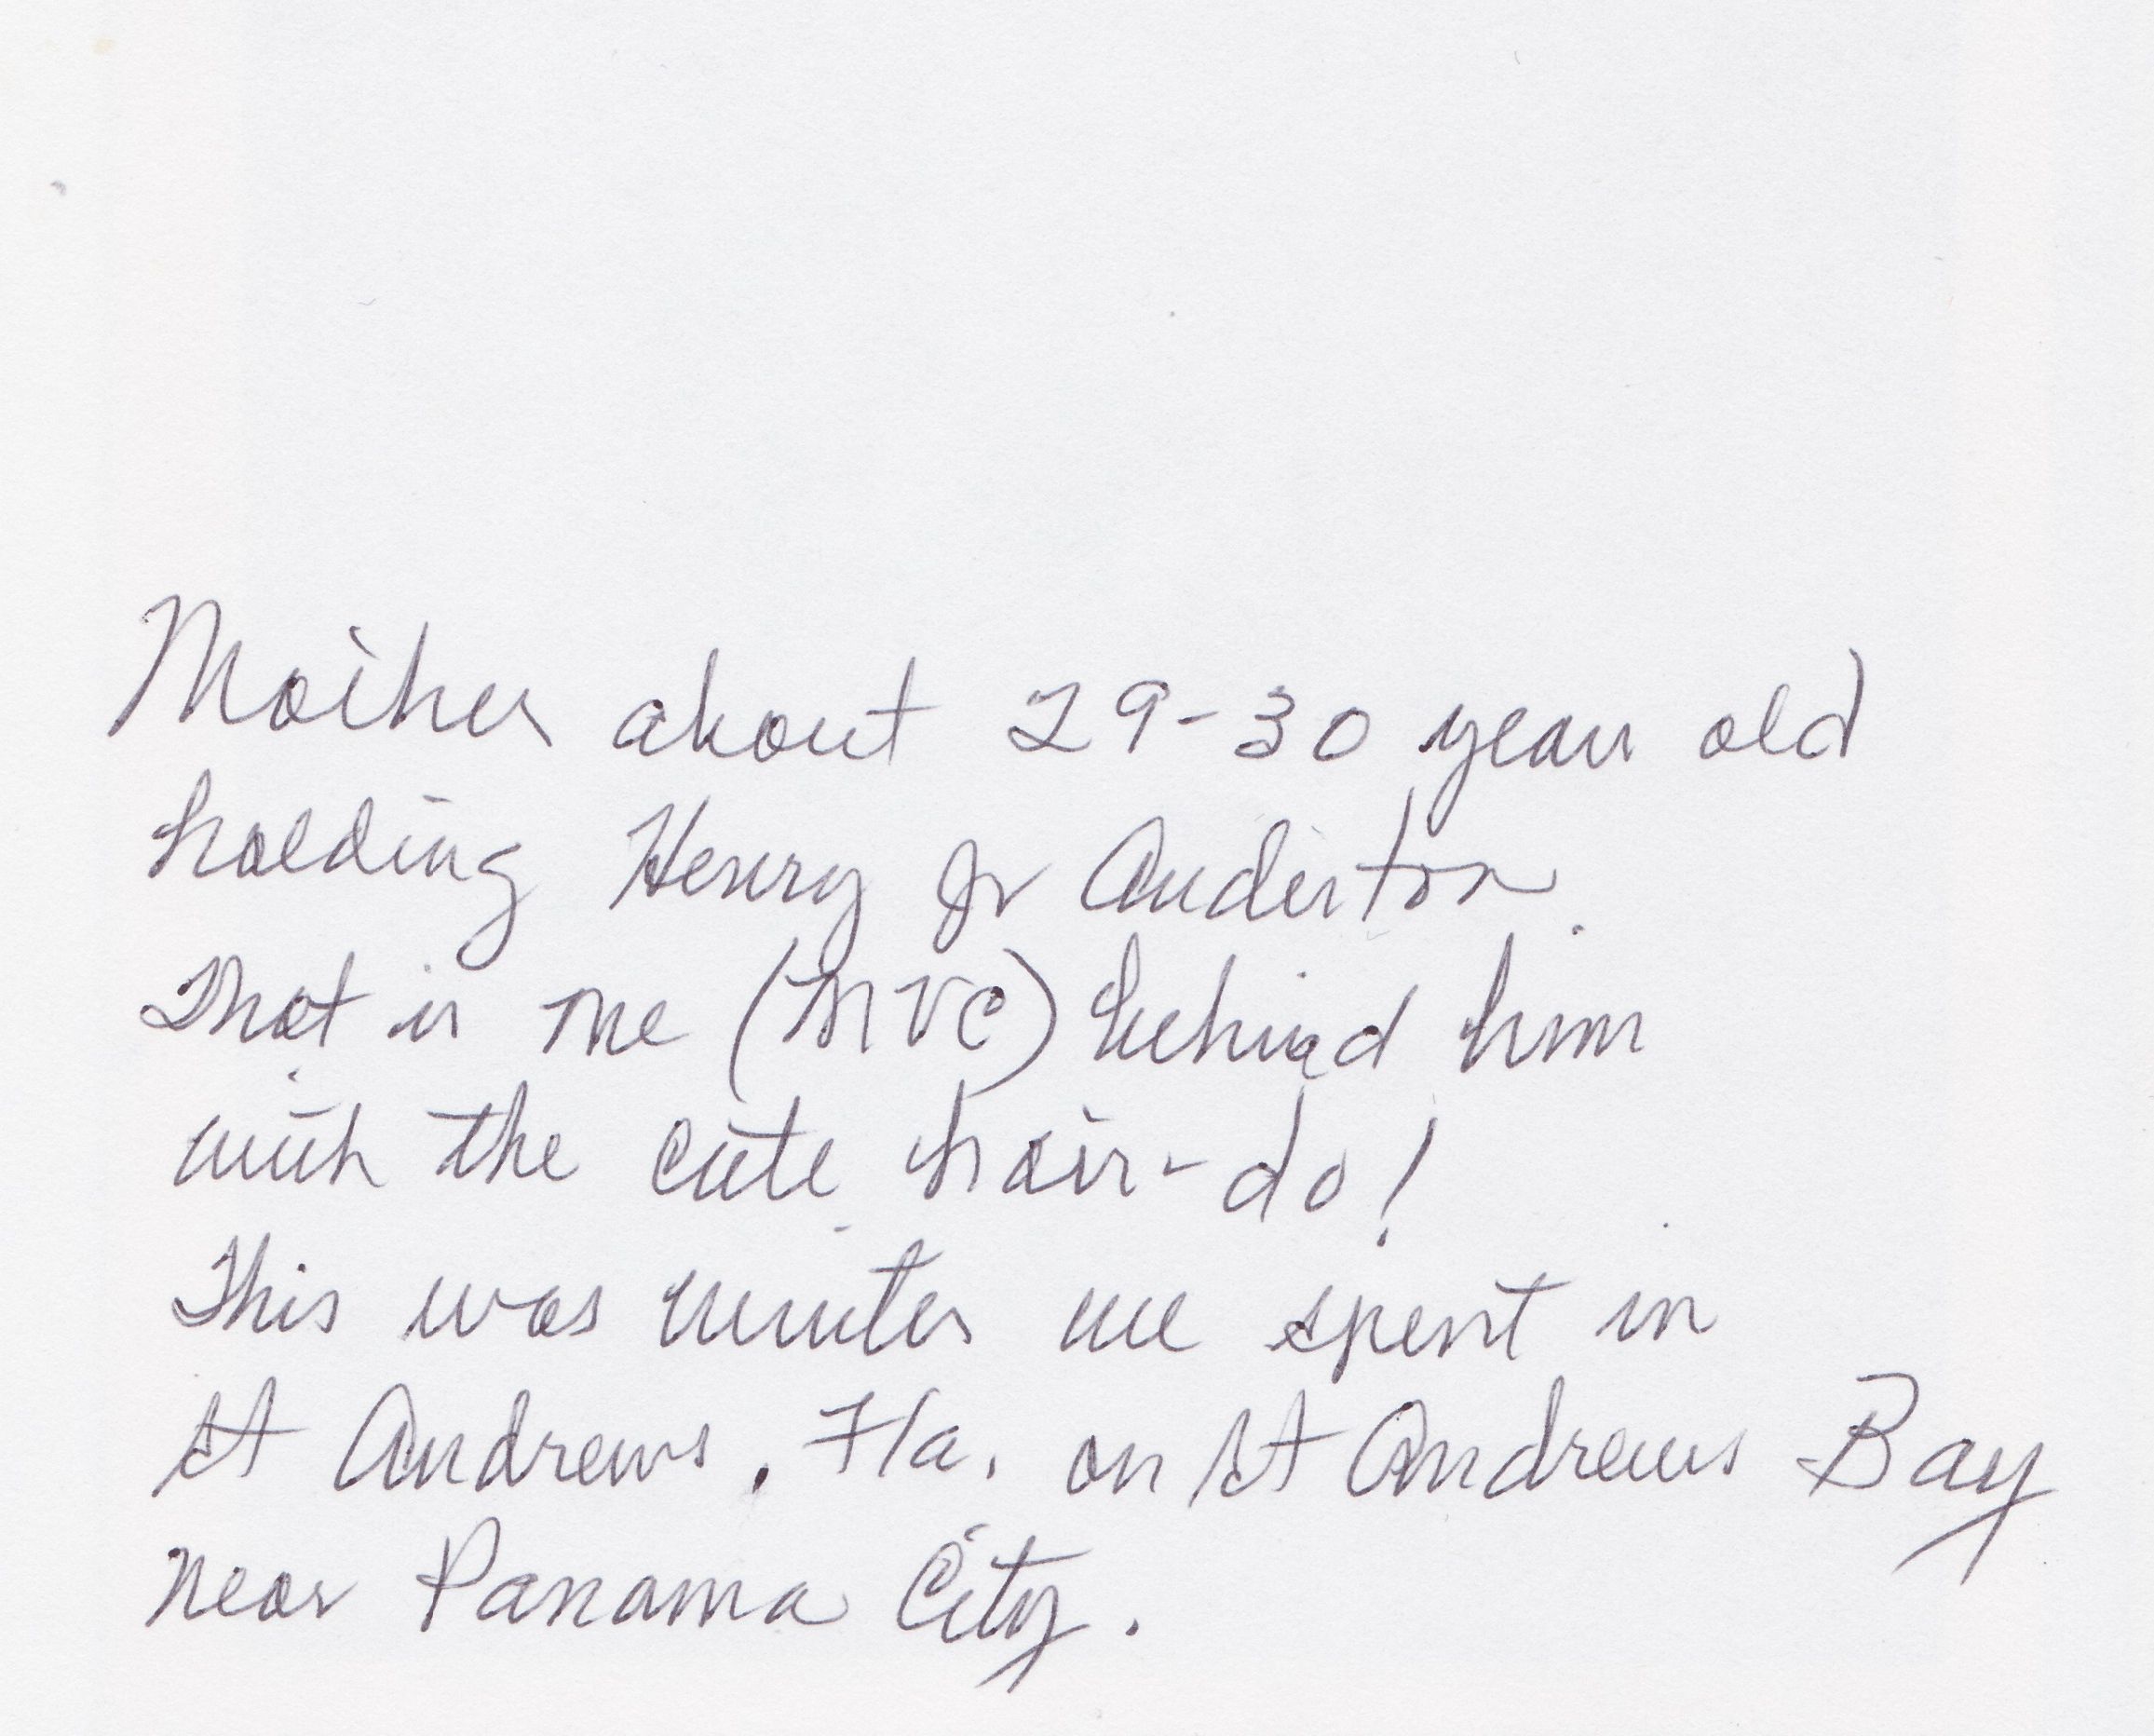 Mother about 29-30 years old
holding Henry Jr Anderton.
That is me (MVC) behind him
with the cute hair-do!
This was winter we spent in
St Andrews, Fla. on St Andrews Bay
near Panama City.